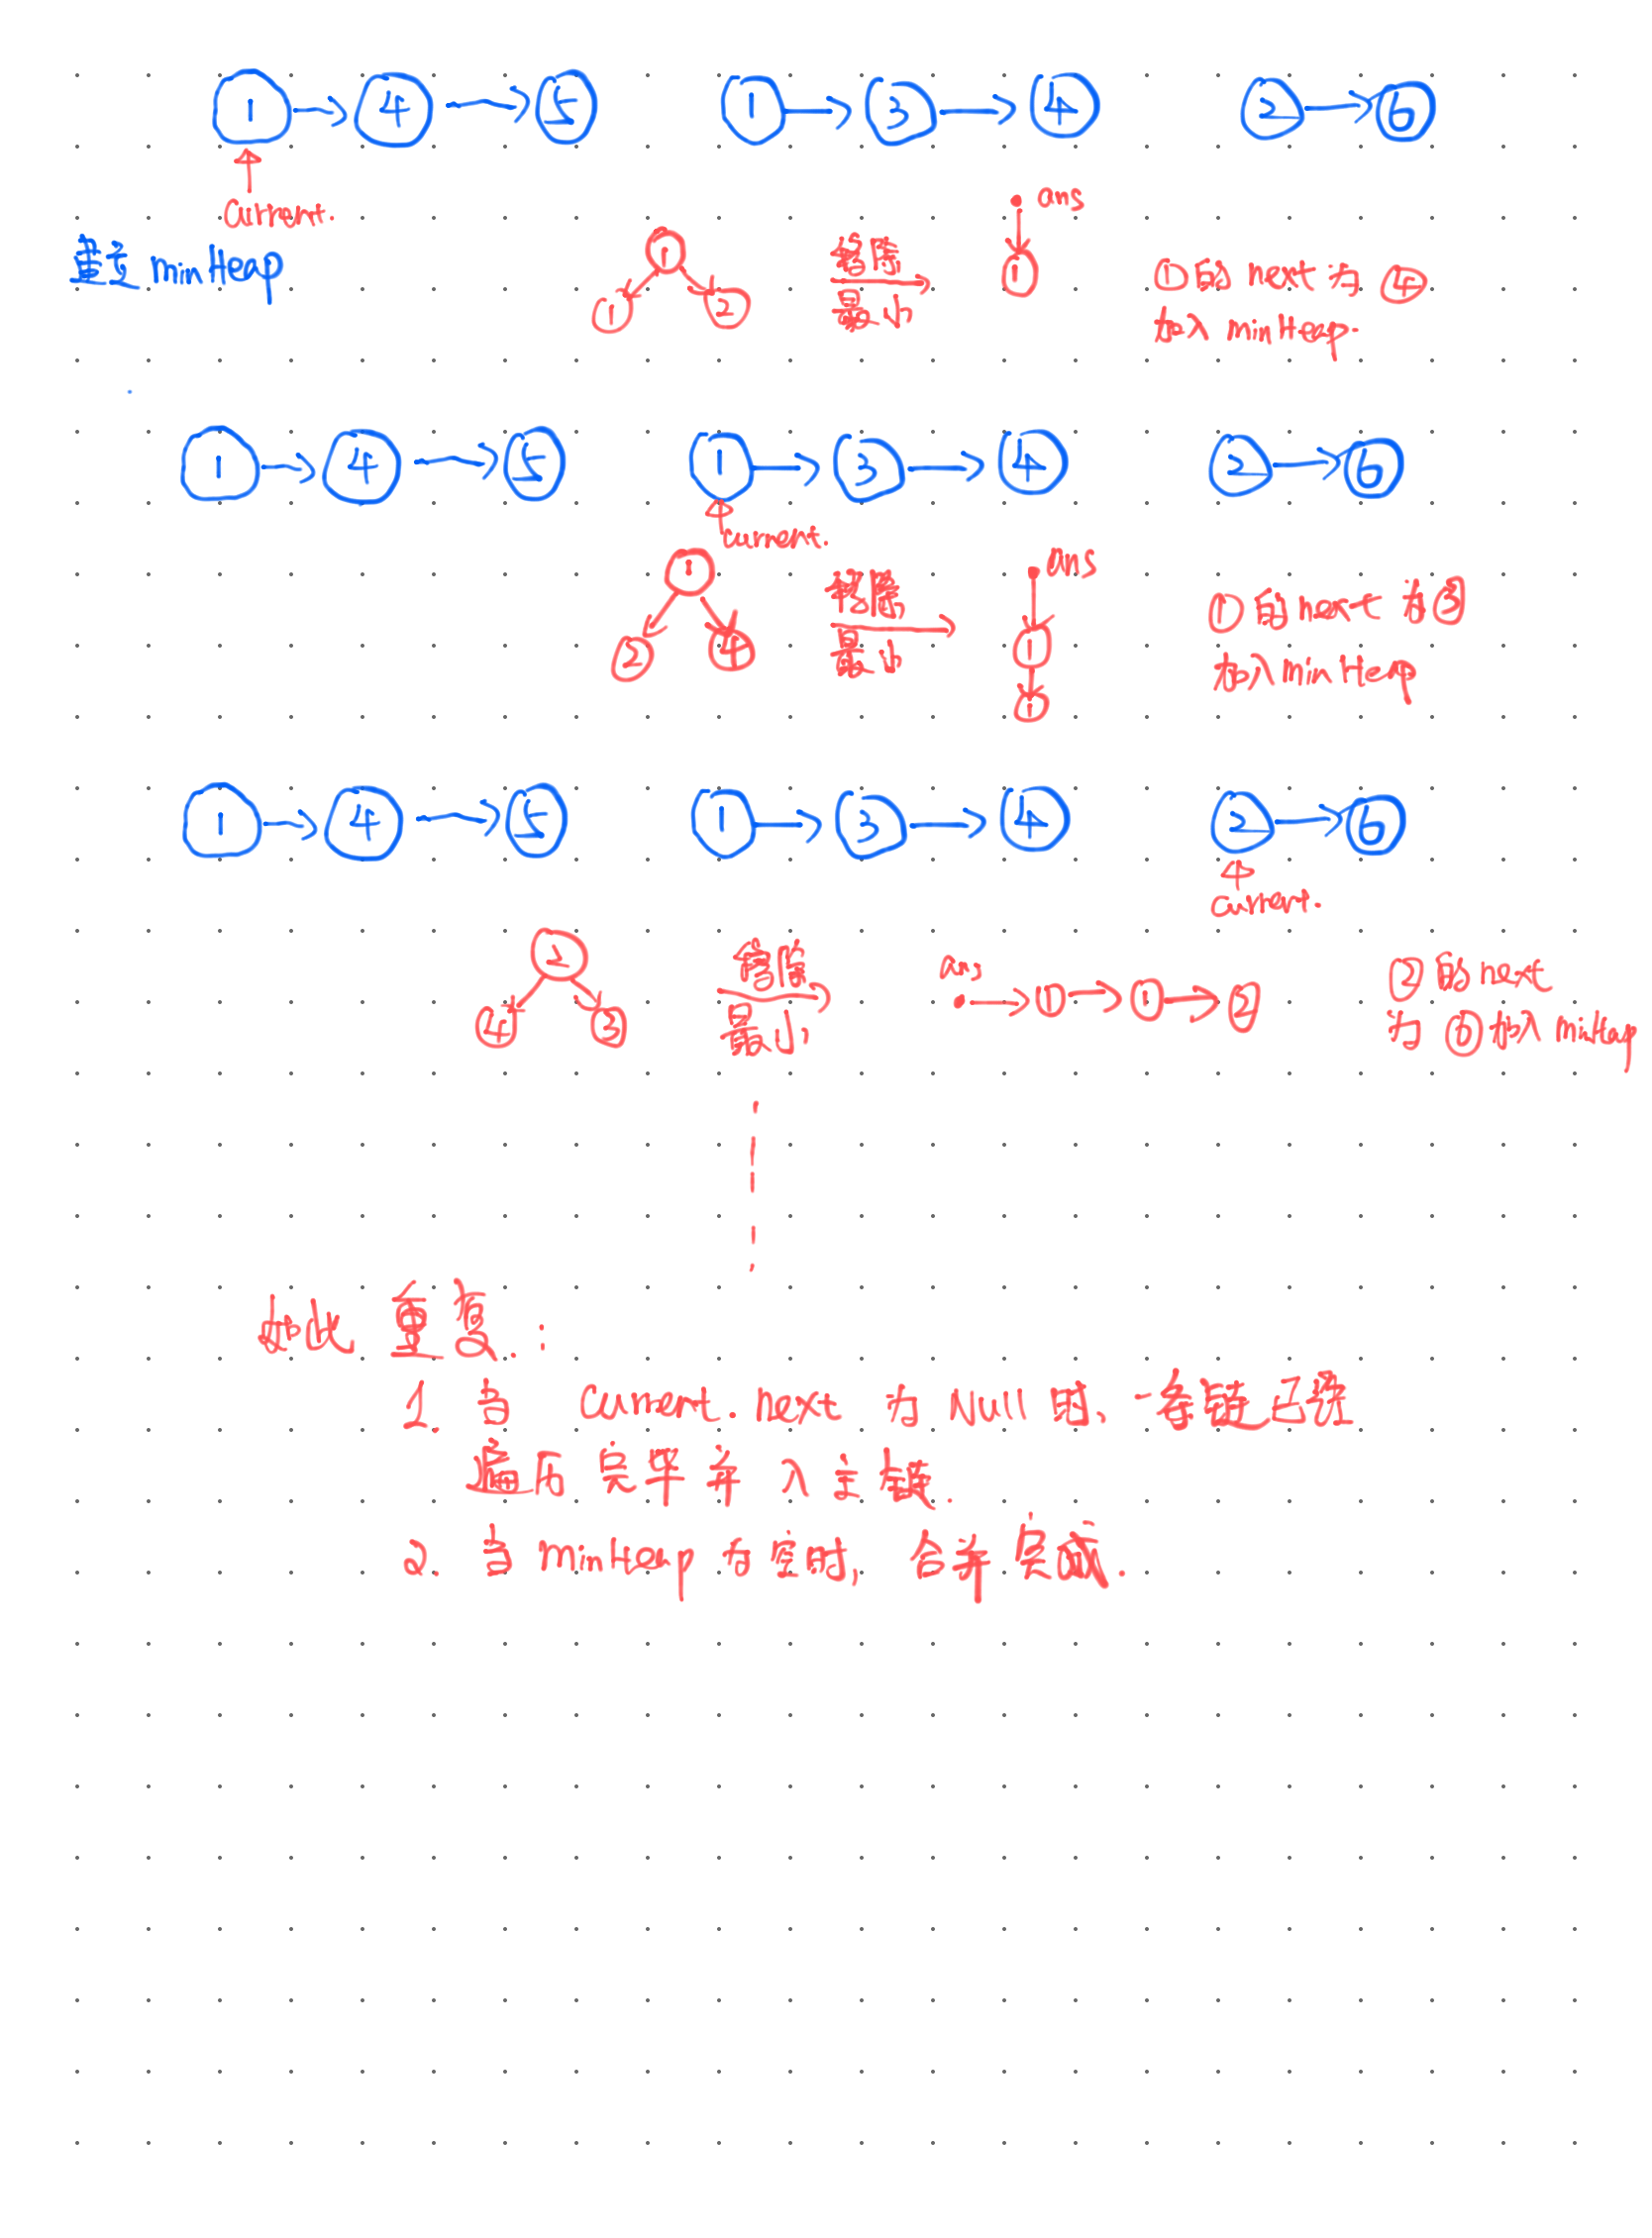 1 → 4 → 5 1 → 3 → 4 2 → 6
Current.
minHeap
1
1 2
移除
最小
ans
1
① 的 next 为 ④
加入 minHeap.
1 → 4 → 5 1 → 3 → 4 2 → 6
current.
1
2 4
移除
最小
ans
1
1
① 的 next 为 ③
加入 minHeap
1 → 4 → 5 1 → 3 → 4 2 → 6
current.
2
4 3
移除
最小
ans → ① → ① → ②
② 的 next
为 ⑥ 加入 minHeap
如此 重复:
1. 当 Current.next 为 Null 时、一条链已经
遍历完毕并入主链.
2. 当 minHeap 为空时, 合并完成.